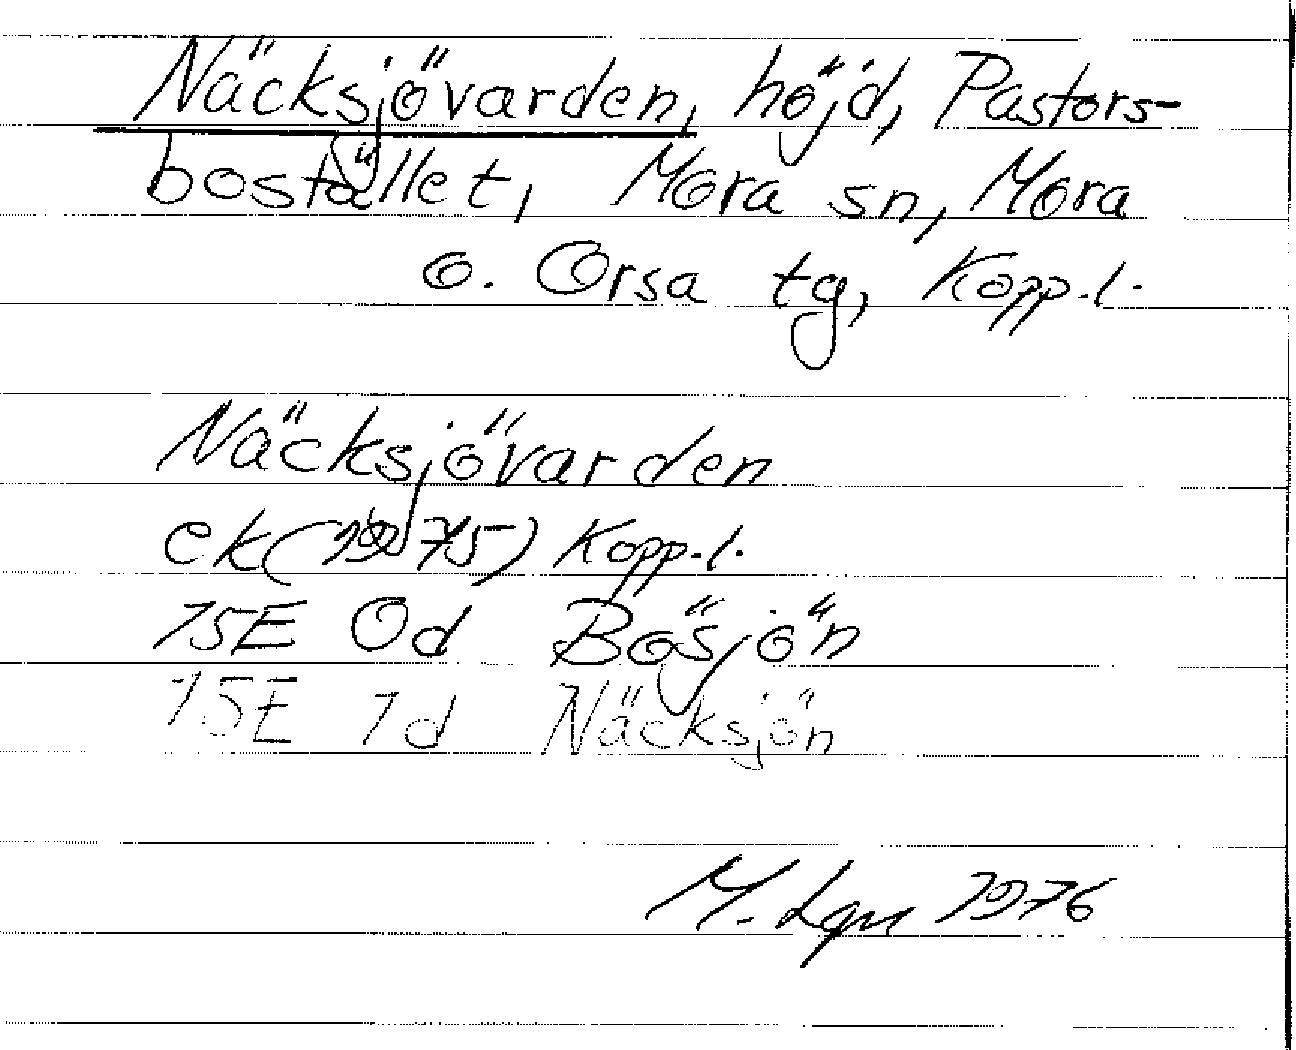 Näcksjövarden, höjd, Pastors-
bostället, Mora sn, Mora
o. Orsa tg, Kopp.l.
Näcksjövarden
ek (1975) Kopp.l.
15E 0d Bösjön
15E 1d Näcksjön
M. Lgn 1976